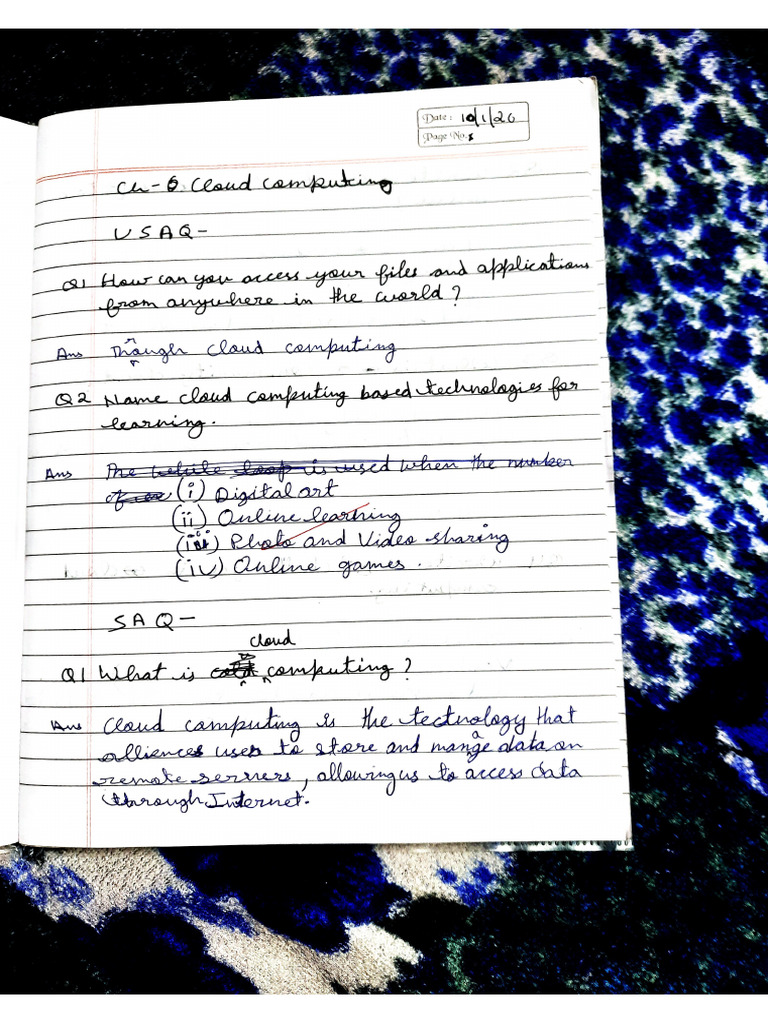 Date: 10/1/26
Page No.
Ch-6 Cloud computing
VSAQ-
Q1 How can you access your files and applications
from anywhere in the world?
Ans Though cloud computing
Q2 Name cloud computing based technologies for
learning.
Ans The while loop is used when the number
of (i) Digital art
(ii) Online learning
(iii) Photo and Video sharing
(iv) Online games.
SAQ-
cloud
Q1 What is computing?
Ans Cloud computing is the technology that
to store and manage data on
remote servers, allowing us to access data
through Internet.